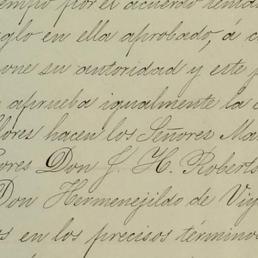 empo por el acuerdo
iglo en ella aprobado, á c
one su autoridad y este p
aprueba igualmente la c
dores hacen los Señores Ma
ores Don J. H. Roberts
Don Hermenejildo de Vig
os en los precisos término